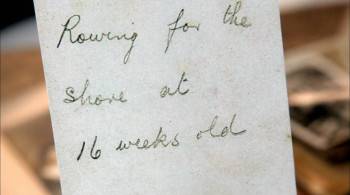 Rowing for the
shore at
16 weeks old